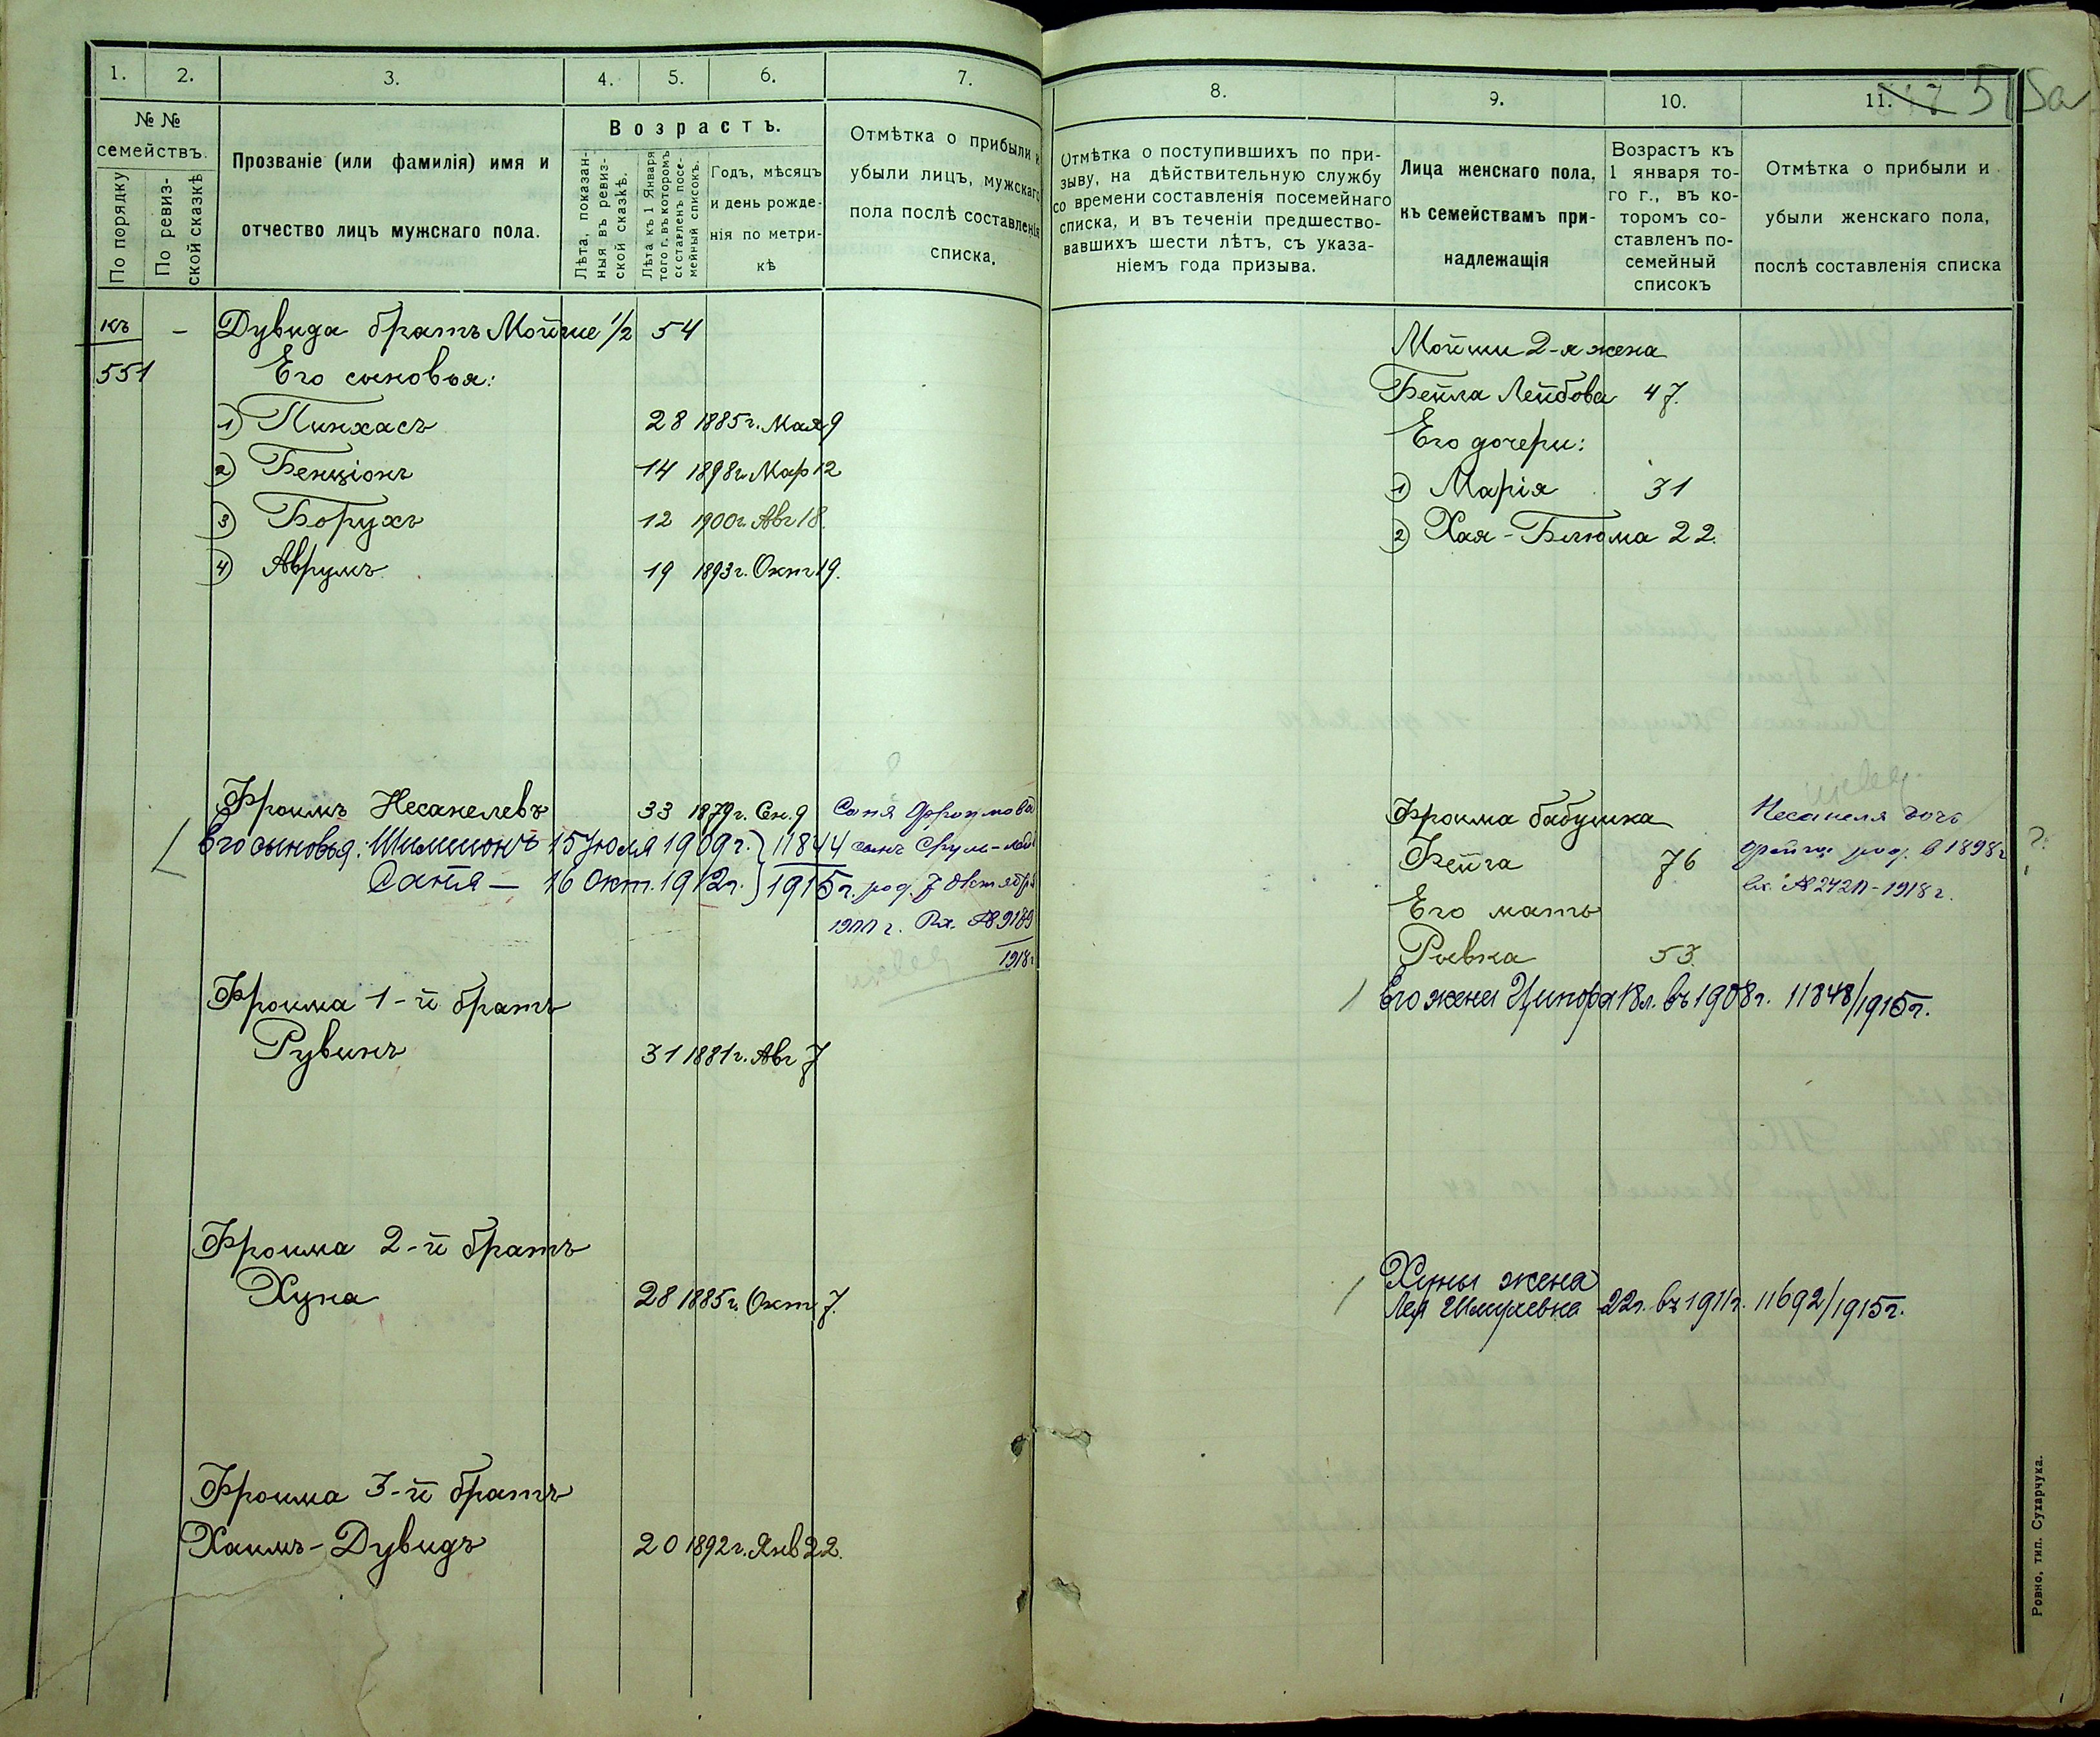 1.
2.
3.
4.
5.
6.
7.
№ №
семействъ.
По порядку
По ревиз-
ской сказкѣ
Прозваніе (или фамилія) имя и
отчество лицъ мужскаго пола.
Возрастъ.
Лѣта, показан-
ныя въ ревиз-
ской сказкѣ.
Лѣта къ 1 Января
того г. въ которомъ
составленъ посе-
мейный списокъ.
Годъ, мѣсяцъ
и день рожде-
нія по метри-
кѣ
Отмѣтка о прибыли и
убыли лицъ, мужскаго
пола послѣ составленія
списка.
къ
551
–
Дувида братъ Мойше 1/2 54
Его сыновья:
1) Пинхасъ 28 1885г. Мая 9
2) Бенціонъ 14 1898г. Мар 12
3) Борухъ 12 1900г. Авг 18.
4) Аврумъ 19 1893г. Окт 19.
Фроимъ Несанелевъ 33 1879г. Сен. 9
Его сыновья. Шимшонъ 15 Юля 1909г. } 11844
Саня — 16 Окт. 1912г. } 1915г.
Саня Фроимова
сынъ Сруль-
род. 7 октября
г. Вх. № 9189
1918г
Фроима 1-й братъ
Рувинъ 31 1881г. Авг 7
Фроима 2-й братъ
Хуна 28 1885г. Окт 7.
Фроима 3-й братъ
Хаимъ-Дувидъ 20 1892г. Янв 22.
8.
9.
10.
11.
517 515а
Отмѣтка о поступившихъ по при-
зыву, на дѣйствительную службу
со времени составленія посемейнаго
списка, и въ теченіи предшество-
вавшихъ шести лѣтъ, съ указа-
ніемъ года призыва.
Лица женскаго пола,
къ семействамъ при-
надлежащія
Возрастъ къ
1 января то-
го г., въ ко-
торомъ со-
ставленъ по-
семейный
списокъ
Отмѣтка о прибыли и
убыли женскаго пола,
послѣ составленія списка
Мойши 2-я жена
Бейла Лейбова 47.
Его дочери:
1) Марія 31
2) Хая-Блюма 22.
Фроима бабушка
Фейга 76
Его мать
Ривка 53.
Несанеля дочь
род. в 1898г
вх. № -1918г.
?
Его жена Ципора 18л. въ 1908г. 11848/1915г.
Хуны жена
Лея Шмулевна 22г. въ 1911г. 11692/1915г.
Ровно, тип. Сухарчука.